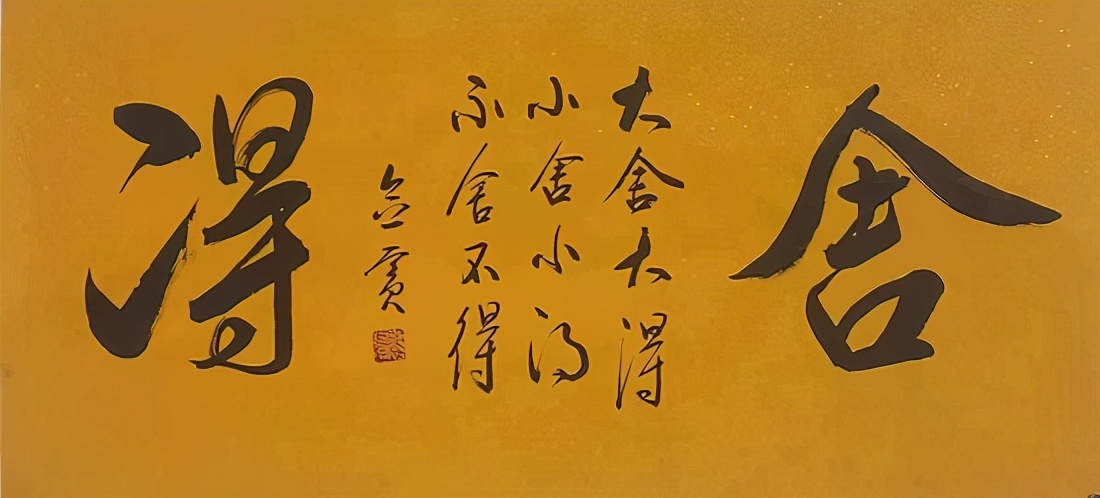 舍
大舍大得
小舍小得
不舍不得
得